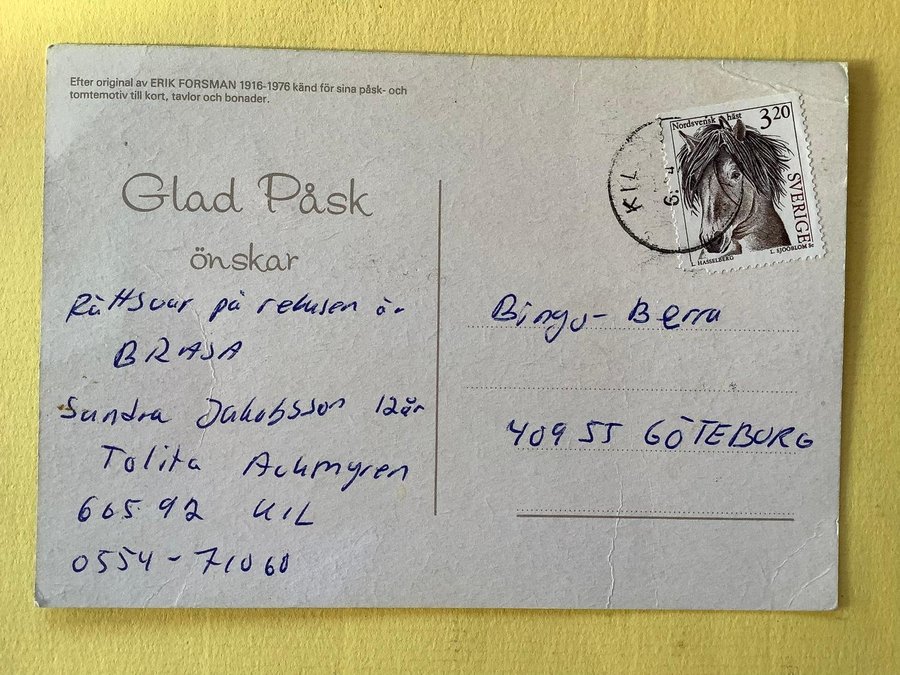 Efter original av ERIK FORSMAN 1916-1976 känd för sina påsk- och
tomtemotiv till kort, tavlor och bonader.
Glad Påsk
önskar
Rättsvar på rebusen är
BRASA
Sandra Jakobsson 12år
Tolita
665 92 KIL
0554-71060
Nordsvensk häst
3 20
SVERIGE
HASSELBERG
L. SJÖÖBLOM Sc
KIL
Bingo-Berra
409 55 GÖTEBORG